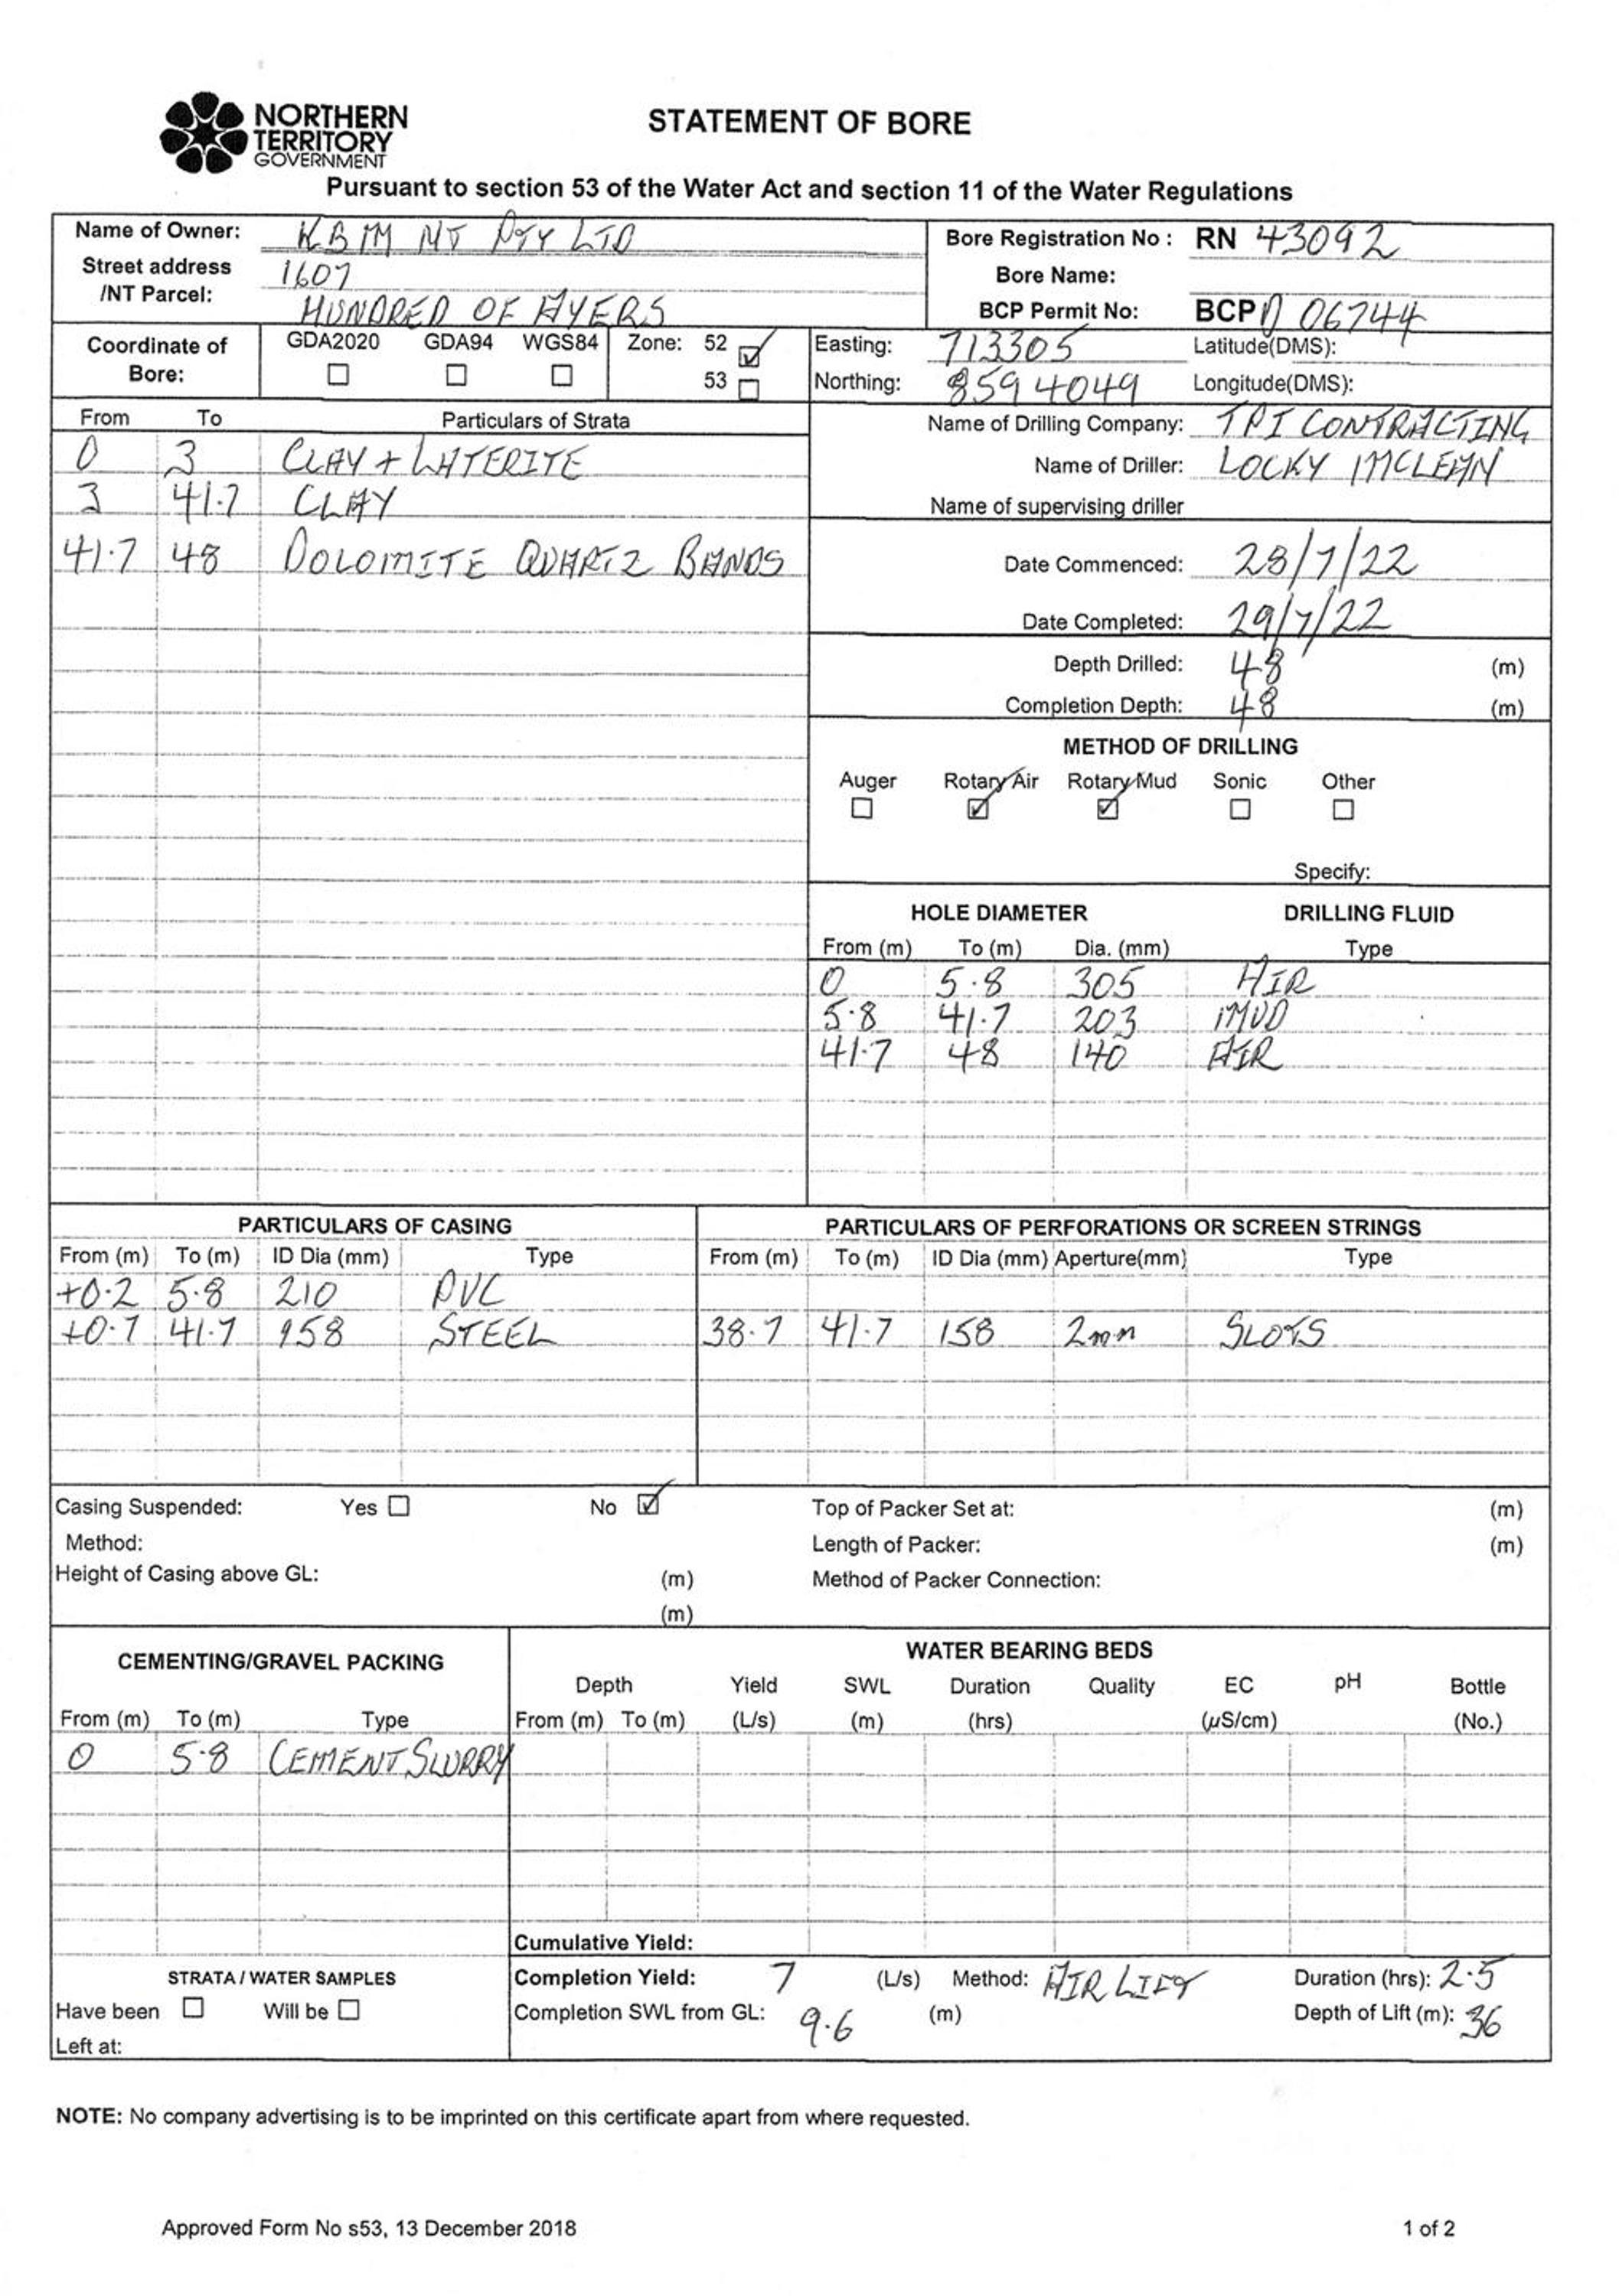 NORTHERN
TERRITORY
GOVERNMENT
STATEMENT OF BORE
Pursuant to section 53 of the Water Act and section 11 of the Water Regulations
Name of Owner: KBM NT PTY LTD
Bore Registration No : RN 43092
Street address /NT Parcel: 1607
HUNDRED OF AYERS
Bore Name:
BCP Permit No: BCP 06744
Coordinate of Bore: GDA2020 ☐ GDA94 ☐ WGS84 ☐ Zone: 52 ☑ 53 ☐
Easting: 713305 Latitude(DMS):
Northing: 8594049 Longitude(DMS):
From To Particulars of Strata
0 3 CLAY + LATERITE
3 41.7 CLAY
41.7 48 DOLOMITE QUARTZ BANDS
Name of Drilling Company: TPI CONTRACTING
Name of Driller: LOCKY MCLEAN
Name of supervising driller
Date Commenced: 28/7/22
Date Completed: 29/7/22
Depth Drilled: 48 (m)
Completion Depth: 48 (m)
METHOD OF DRILLING
Auger ☐ Rotary Air ☑ Rotary Mud ☑ Sonic ☐ Other ☐
Specify:
HOLE DIAMETER DRILLING FLUID
From (m) To (m) Dia. (mm) Type
0 5.8 305 AIR
5.8 41.7 203 MUD
41.7 48 140 AIR
PARTICULARS OF CASING
From (m) To (m) ID Dia (mm) Type
+0.2 5.8 210 PVC
+0.7 41.7 158 STEEL
PARTICULARS OF PERFORATIONS OR SCREEN STRINGS
From (m) To (m) ID Dia (mm) Aperture(mm) Type
38.7 41.7 158 2mm SLOTS
Casing Suspended: Yes ☐ No ☑
Method:
Height of Casing above GL: (m)
(m)
Top of Packer Set at: (m)
Length of Packer: (m)
Method of Packer Connection:
CEMENTING/GRAVEL PACKING
From (m) To (m) Type
0 5.8 CEMENT SLURRY
WATER BEARING BEDS
Depth Yield SWL Duration Quality EC pH Bottle
From (m) To (m) (L/s) (m) (hrs) (µS/cm) (No.)
Cumulative Yield:
STRATA / WATER SAMPLES
Have been ☐ Will be ☐
Left at:
Completion Yield: 7 (L/s) Method: AIR LIFT Duration (hrs): 2.5
Completion SWL from GL: 9.6 (m) Depth of Lift (m): 36
NOTE: No company advertising is to be imprinted on this certificate apart from where requested.
Approved Form No s53, 13 December 2018
1 of 2